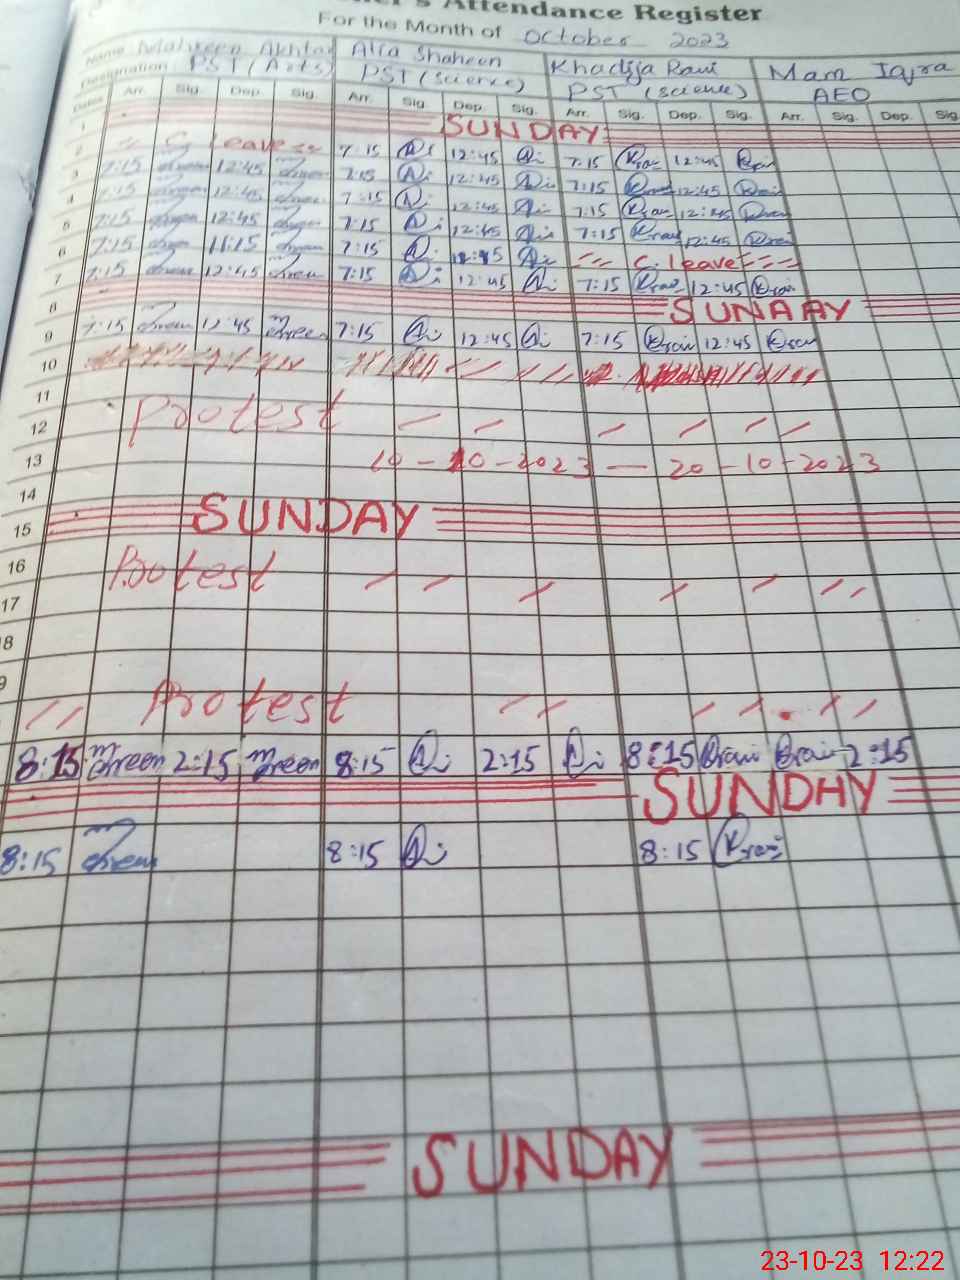 Attendance Register
For the Month of October 2023
Name Mahreen Akhtar Alia Shaheen Khadija Rani Mam Iqra
Designation PST (Arts) PST (Science) PST (Science) AEO
Dates Arr. Sig. Dep. Sig. Arr. Sig. Dep. Sig. Arr. Sig. Dep. Sig. Arr. Sig. Dep. Sig.
1 SUNDAY
2 C Leave 7:15 12:45 7:15 12:45
3 7:15 12:45 7:15 12:45 7:15 12:45
4 7:15 12:45 7:15 12:45 7:15 12:45
5 7:15 12:45 7:15 12:45 7:15 12:45
6 7:15 11:15 7:15 12:45 C. leave
7 7:15 12:45 7:15 12:45 7:15 12:45
8 SUNAAY
9 7:15 12:45 7:15 12:45 7:15 12:45
10
11
12 Protest
13 10-10-2023 — 20-10-2023
14
15 SUNDAY
16 Protest
17
8
9
Protest
8:15 2:15 8:15 2:15 8:15 2:15
SUNDAY
8:15 8:15 8:15
SUNDAY
23-10-23 12:22